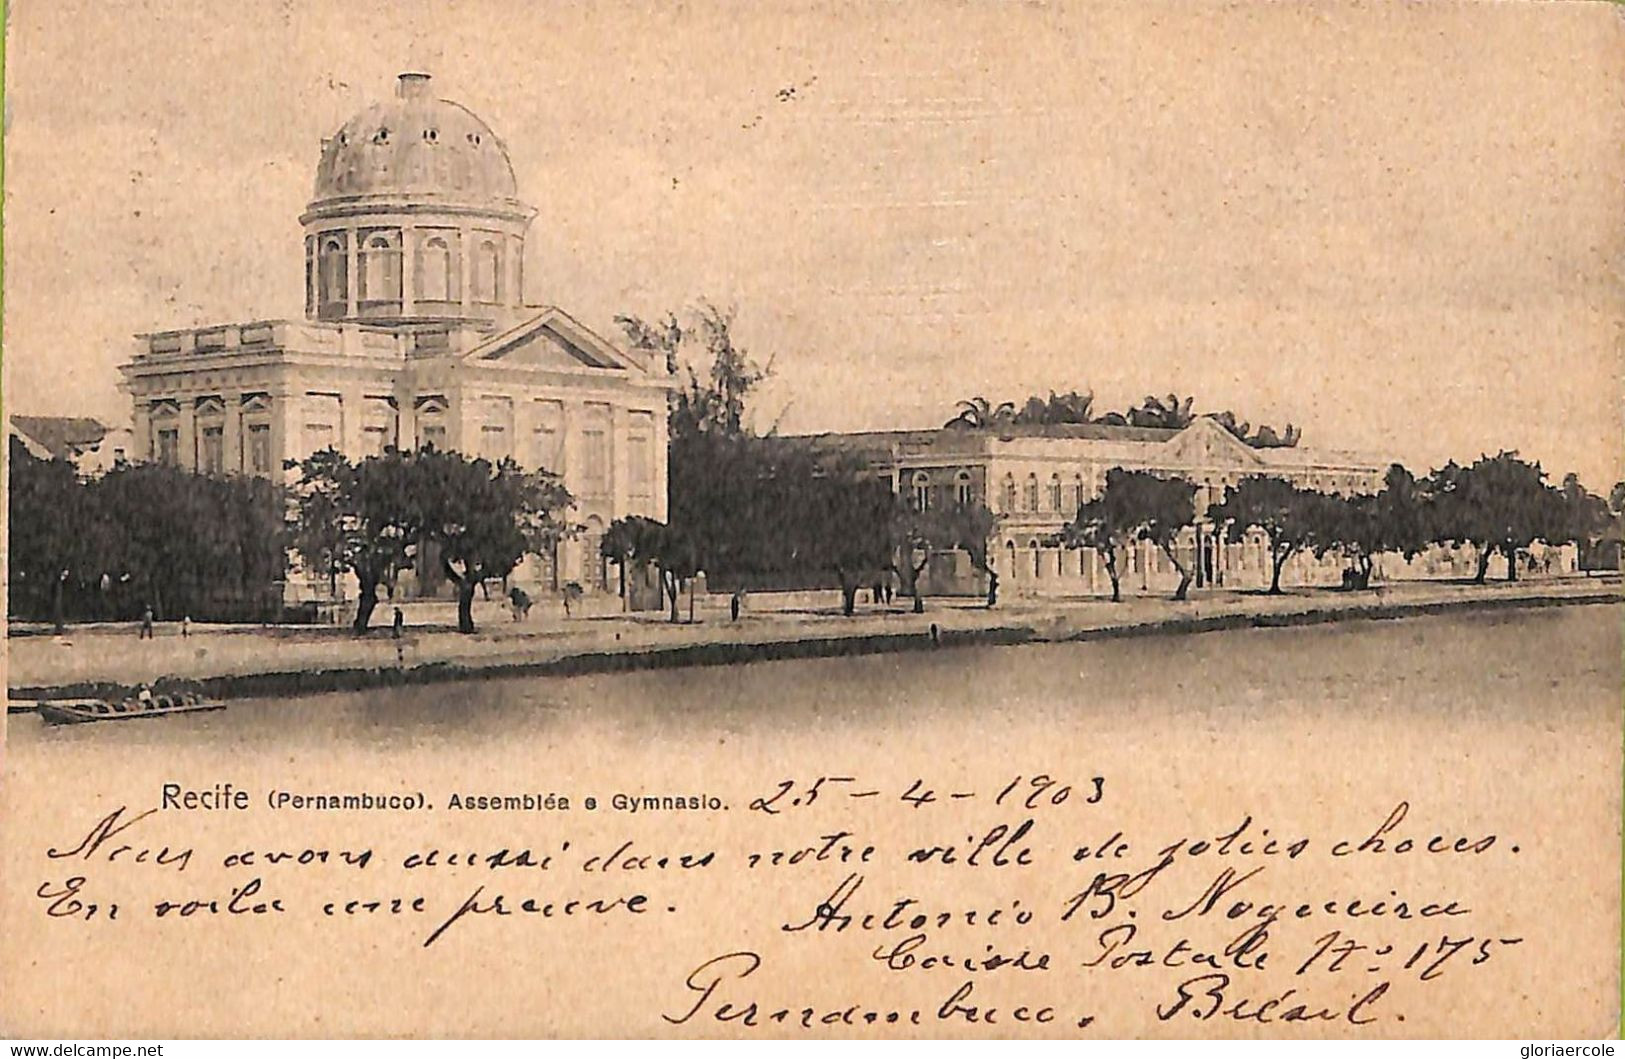 Recife (Pernambuco). Assembléa e Gymnasio. 25-4-1903
Nous avons aussi dans notre ville de jolies choses.
En voilà une preuve.
Antonio B. Nogueira
Caisse Postale Nº 175
Pernambuco. Brésil.
www.delcampe.net
gloriaercole